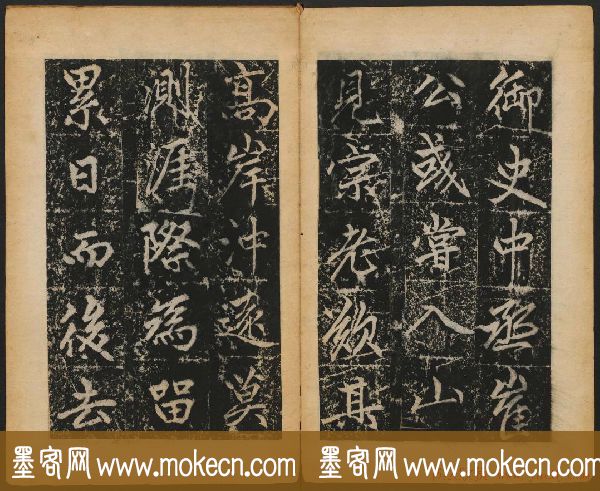 御史中丞崔
公或嘗入山
見宗老欽其
高岸沖遠莫
測涯際為留
累日而後去
墨客网 www.mokecn.com
墨客网 www.mokecn.com